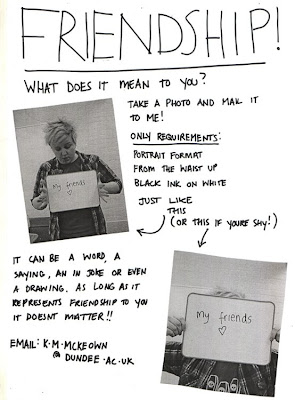 FRIENDSHIP!
WHAT DOES IT MEAN TO YOU?
TAKE A PHOTO AND MAIL IT
TO ME!
ONLY REQUIREMENTS:
PORTRAIT FORMAT
FROM THE WAIST UP
BLACK INK ON WHITE
JUST LIKE
THIS
(OR THIS IF YOURE SHY!)
My friends
♡
IT CAN BE A WORD, A
SAYING, AN IN JOKE OR EVEN
A DRAWING. AS LONG AS IT
REPRESENTS FRIENDSHIP TO YOU
IT DOESNT MATTER!!
My friends
♡
EMAIL: K.M.MCKEOWN
@ DUNDEE.AC.UK